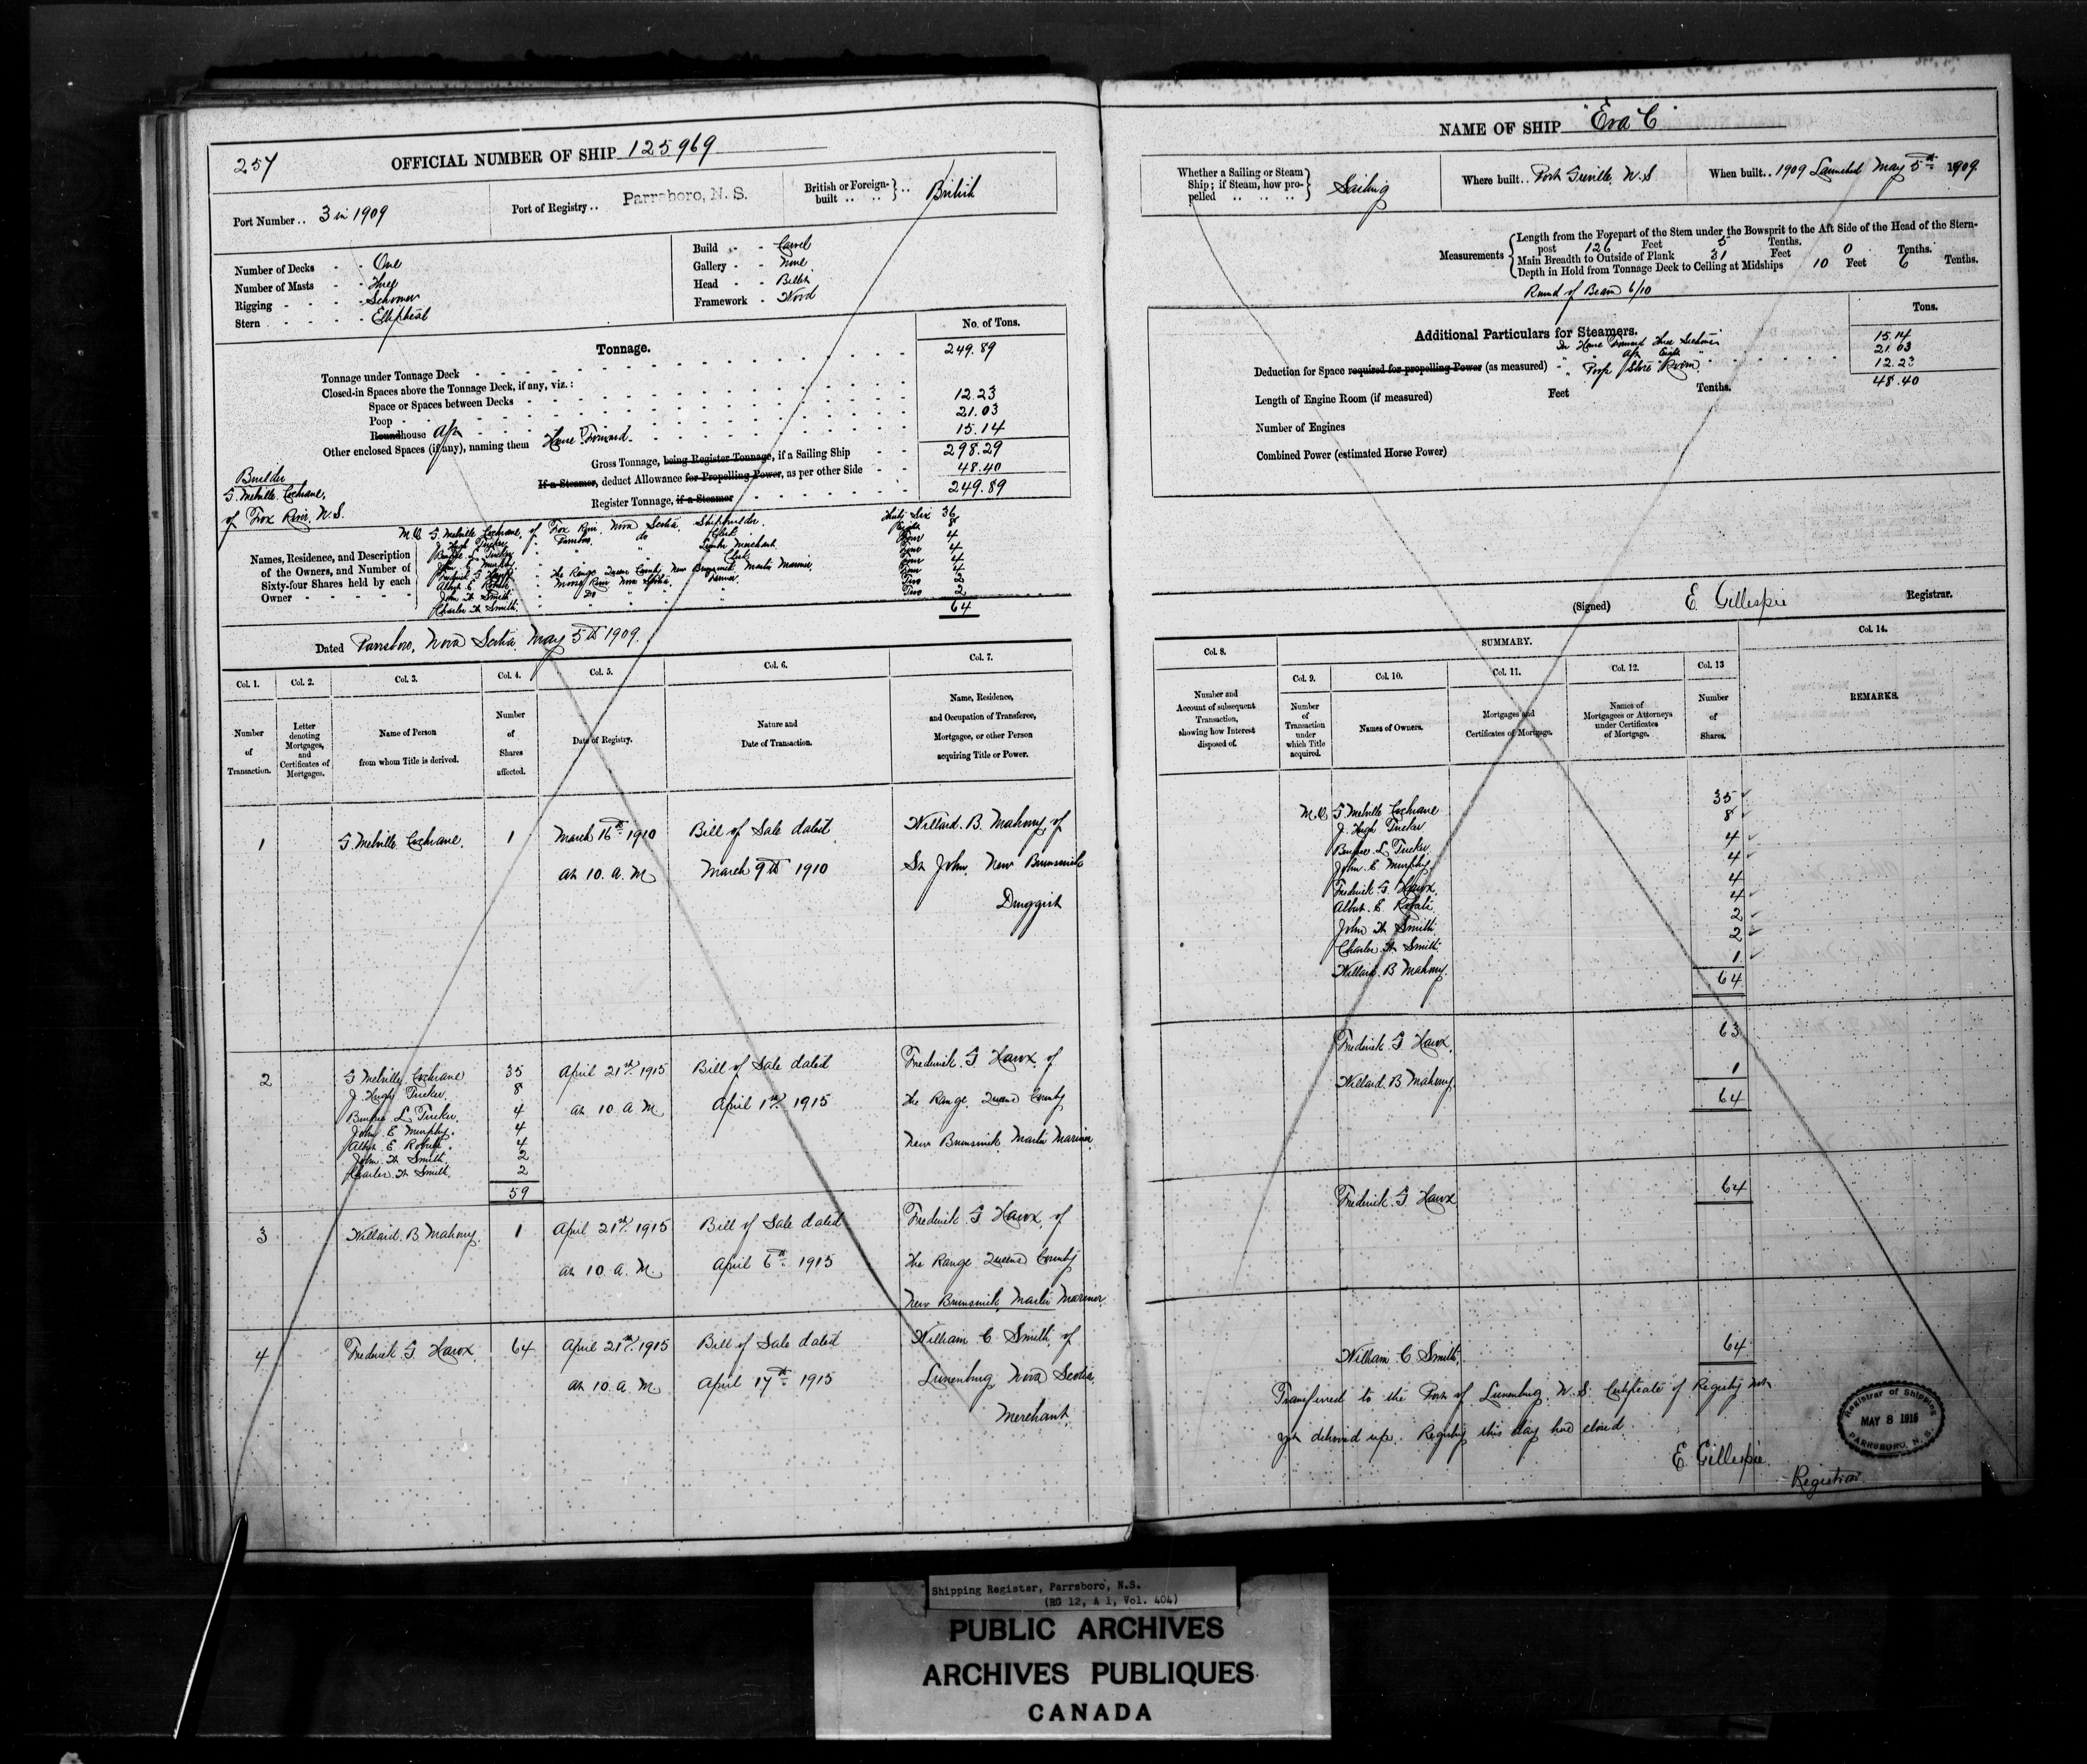 257
OFFICIAL NUMBER OF SHIP 125969
Port Number .. 3 in 1909
Port of Registry .. Parrsboro, N. S.
British or Foreign-built .. .. British
Number of Decks - - One
Number of Masts - - Three
Rigging - - - - Schooner
Stern - - - - Elliptical
Build - - Carvel
Gallery - - None
Head - - Billet
Framework - Wood
Tonnage.
No. of Tons.
Tonnage under Tonnage Deck 249.89
Closed-in Spaces above the Tonnage Deck, if any, viz.:
Space or Spaces between Decks
Poop 12.23
Roundhouse Aft 21.03
Other enclosed Spaces (if any), naming them House Forward 15.14
Gross Tonnage, being Register Tonnage, if a Sailing Ship 298.29
If a Steamer, deduct Allowance for Propelling Power, as per other Side 48.40
Register Tonnage, if a Steamer 249.89
Builder
G. Melville Cochrane,
of Fox River, N.S.
Names, Residence, and Description of the Owners, and Number of Sixty-four Shares held by each Owner
M.O. G. Melville Cochrane, of Fox River, Nova Scotia, Shipbuilder. Thirty Six 36
J. Hugh Tucker, " Parrsboro, do Clerk Eight 8
Burpee L. Tucker " " " Lumber Merchant Four 4
John E. Murphy " " " Clerk Four 4
Frederick G. " The Range Queens County, New Brunswick, Master Mariner, Four 4
Albert E. Roberts " Moose River Nova Scotia, Farmer Four 4
John W. Smith " Do " " " Two 2
Charles W. Smith " " " " " Two 2
64
Dated Parrsboro, Nova Scotia May 5th 1909.
Col. 1. Col. 2. Col. 3. Col. 4. Col. 5. Col. 6. Col. 7.
Number of Transaction.
Letter denoting Mortgages, and Certificates of Mortgages.
Name of Person from whom Title is derived.
Number of Shares affected.
Date of Registry.
Nature and Date of Transaction.
Name, Residence, and Occupation of Transferee, Mortgagee, or other Person acquiring Title or Power.
1 G. Melville Cochrane. 1 March 16th 1910 Bill of Sale dated Willard. B. Mahony, of
at 10. a. M. March 9th 1910 St John, New Brunswick
Druggist
2 G Melville Cochrane 35 April 21st 1915 Bill of Sale dated Frederick. G of
J. Hugh Tucker. 8 at 10. a. M. April 1st 1915 the Range. Queens County
Burpee L. Tucker. 4 New Brunswick, Master Mariner
John E Murphy. 4
Albert E Roberts. 4
John W Smith. 2
Charles W Smith. 2
59
3 Willard. B. Mahony. 1 April 21st 1915 Bill of Sale dated Frederick. G of
at 10. a. M. April 6th 1915 the Range Queens County
New Brunswick, Master Mariner.
4 Frederick. G. 64 April 21st 1915 Bill of Sale dated William C. Smith, of
at 10. a. M. April 17th 1915 Lunenburg Nova Scotia.
Merchant.
NAME OF SHIP "Eva C"
Whether a Sailing or Steam Ship; if Steam, how propelled .. .. .. Sailing
Where built .. Port Greville, N. S
When built .. 1909 Launched May 5th 1909.
Measurements
Length from the Forepart of the Stem under the Bowsprit to the Aft Side of the Head of the Stern-
post 126 Feet 5 Tenths.
Main Breadth to Outside of Plank 31 Feet 0 Tenths.
Depth in Hold from Tonnage Deck to Ceiling at Midships 10 Feet 6 Tenths.
Round of Beam 6/10
Additional Particulars for Steamers.
Tons.
In House Forward Three Seamen 15.14
" " Aft Eight " 21.03
Deduction for Space required for propelling Power (as measured) - " Poop Store Room. 12.23
48.40
Length of Engine Room (if measured) Feet Tenths.
Number of Engines
Combined Power (estimated Horse Power)
(Signed) E. Gillespie Registrar.
Col. 8.
SUMMARY.
Col. 14.
Col. 9. Col. 10. Col. 11. Col. 12. Col. 13
Number and Account of subsequent Transaction, showing how Interest disposed of.
Number of Transaction under which Title acquired.
Names of Owners.
Mortgages and Certificates of Mortgage.
Names of Mortgagees or Attorneys under Certificates of Mortgage.
Number of Shares.
REMARKS.
M.O. G. Melville Cochrane 35
J. Hugh Tucker 8
Burpee L Tucker. 4
John. E Murphy. 4
Frederick G. 4
Albert. E Roberts 4
John W Smith. 2
Charles W Smith. 2
Willard. B Mahony. 1
64
Frederick G 63
Willard. B Mahony. 1
64
Frederick. G 64
William C. Smith. 64
Transferred to the Port of Lunenburg. N. S. Certificate of Registry not
yet delivered up. Registry this day has closed.
E Gillespie.
Registrar
Registrar of Shipping
MAY 8 1915
PARRSBORO, N. S.
Shipping Register, Parrsboro, N.S.
(RG 12, A 1, Vol. 404)
PUBLIC ARCHIVES
ARCHIVES PUBLIQUES
CANADA